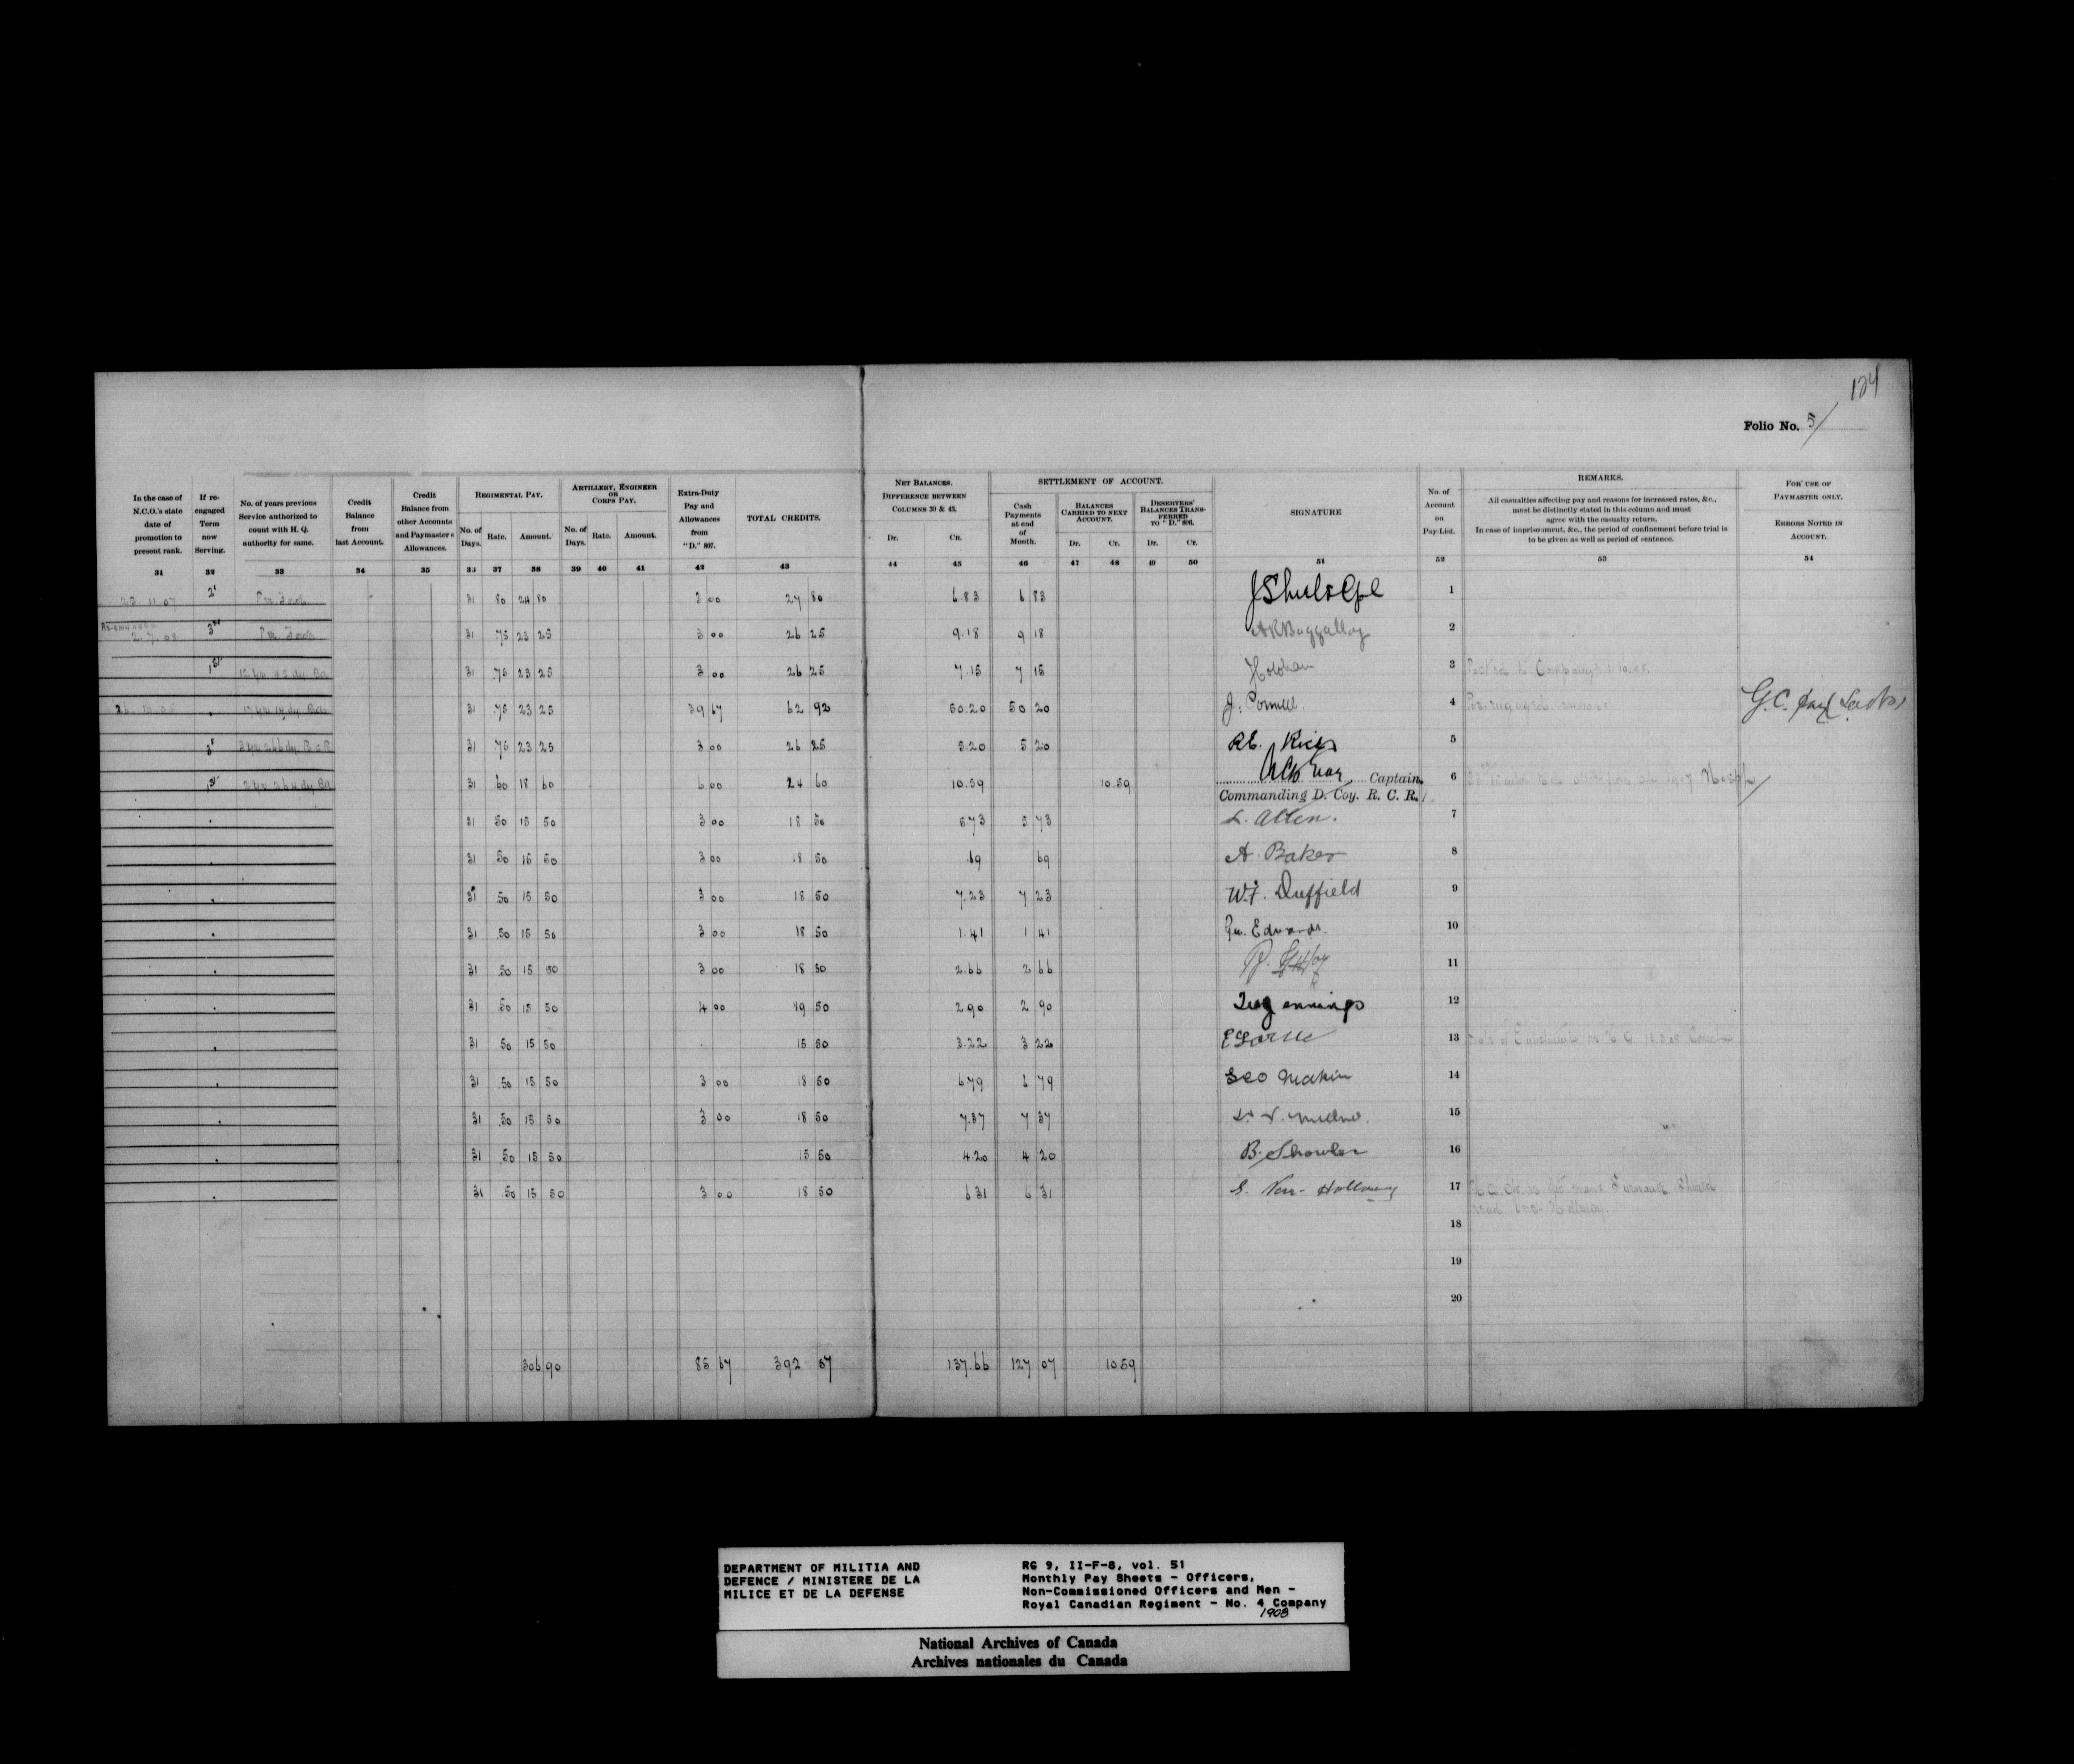 124
Folio No. 5
In the case of N.C.O.'s state date of promotion to present rank.
If re-engaged Term now Serving.
No. of years previous Service authorized to count with H. Q. authority for same.
Credit Balance from last Account.
Credit Balance from other Accounts and Paymasters Allowances.
REGIMENTAL PAY.
No. of Days. Rate. Amount.
ARTILLERY, ENGINEER OR CORPS PAY.
No. of Days. Rate. Amount.
Extra-Duty Pay and Allowances from "D." 807.
TOTAL CREDITS.
NET BALANCES.
DIFFERENCE BETWEEN COLUMNS 30 & 43.
Dr. Cr.
SETTLEMENT OF ACCOUNT.
Cash Payments at end of Month.
BALANCES CARRIED TO NEXT ACCOUNT.
Dr. Cr.
DESERTERS' BALANCES TRANSFERRED TO "D." 806.
Dr. Cr.
SIGNATURE
No. of Account on Pay-List.
REMARKS.
All casualties affecting pay and reasons for increased rates, &c., must be distinctly stated in this column and must agree with the casualty return.
In case of imprisonment, &c., the period of confinement before trial is to be given as well as period of sentence.
FOR USE OF PAYMASTER ONLY.
ERRORS NOTED IN ACCOUNT.
31 32 33 34 35 36 37 38 39 40 41 42 43 44 45 46 47 48 49 50 51 52 53 54
31 80 24 80 3 00 27 80 6.83 6 83 1
2.7.08 3rd 31 .75 23 25 3 00 26 25 9.18 9 18 A R Baggallay 2
1st 31 .75 23 25 3 00 26 25 7.15 7 15 Holohan 3
31 .75 23 25 39 67 62 92 50.20 50 20 4 G.C. pay
31 .75 23 25 3 00 26 25 5.20 5 20 5
31 .60 18 60 6 00 24 60 10.59 10.59 Captain, 6
Commanding D. Coy. R. C. R.
31 .50 15 50 3 00 18 50 5 73 5 73 L. Allen. 7
31 .50 15 50 3 00 18 50 .69 69 A. Baker 8
31 .50 15 50 3 00 18 50 7.23 7 23 W.F. Duffield 9
31 .50 15 50 3 00 18 50 1.41 1 41 Edwards 10
31 .50 15 50 3 00 18 50 2.66 2 66 11
31 .50 15 50 4 00 19 50 2.90 2 90 Jennings 12
31 .50 15 50 15 50 3.22 3 22 13
31 .50 15 50 3 00 18 50 6.79 6 79 Geo Makin 14
31 .50 15 50 3 00 18 50 7.37 7 37 15
31 .50 15 50 15 50 4.20 4 20 B. Showler 16
31 .50 15 50 3 00 18 50 6 31 6 31 Holloway 17
18
19
20
306 90 85 67 392 57 137.66 127 07 10 59
DEPARTMENT OF MILITIA AND
DEFENCE / MINISTERE DE LA
MILICE ET DE LA DEFENSE
RG 9, II-F-8, vol. 51
Monthly Pay Sheets - Officers,
Non-Commissioned Officers and Men -
Royal Canadian Regiment - No. 4 Company
1908
National Archives of Canada
Archives nationales du Canada